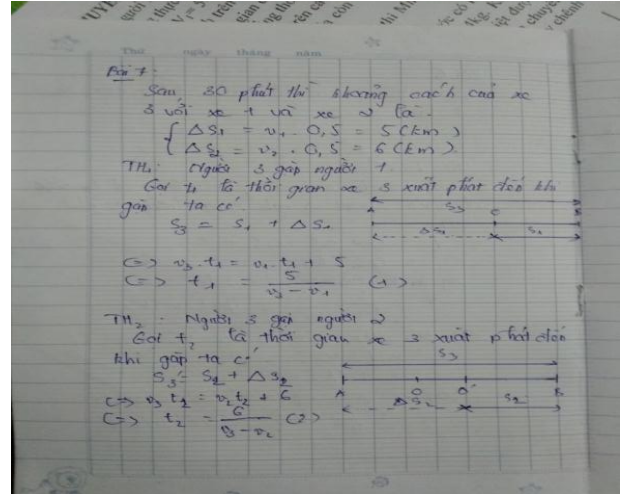 Thứ ngày tháng năm
Bài 7:
Sau 30 phút thì khoảng cách của xe
3 với xe 1 và xe 2 là:
{ ΔS₁ = v₁ . 0,5 = 5 (km)
{ ΔS₂ = v₂ . 0,5 = 6 (km)
TH₁: Người 3 gặp người 1
Gọi t₁ là thời gian xe 3 xuất phát đến khi
gặp ta có
S₃
S₃ = S₁ + ΔS₁
ΔS₁ S₁
<=> v₃ . t₁ = v₁ . t₁ + 5
<=> t₁ = 5 / (v₃ - v₁) (1)
TH₂: Người 3 gặp người 2
Gọi t₂ là thời gian xe 3 xuất phát đến
khi gặp ta có
S₃
S₃ = S₂ + ΔS₂
ΔS₂ S₂
<=> v₃ t₂ = v₂ t₂ + 6
<=> t₂ = 6 / (v₃ - v₂) (2)